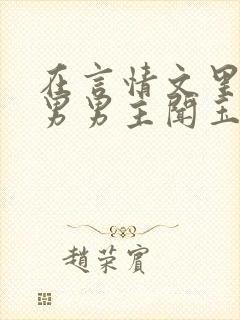 在言情文里
男男主闻玉
趙荣賓